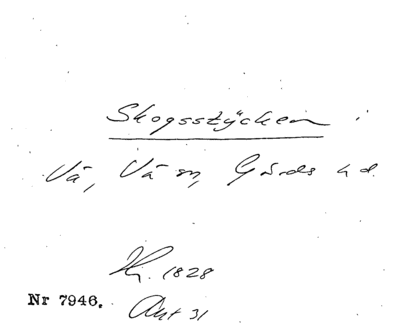 Skogsstÿcken i
Vä, Vä sn, Gärds hd.
Hj. 1828
Akt 31
Nr 7946.